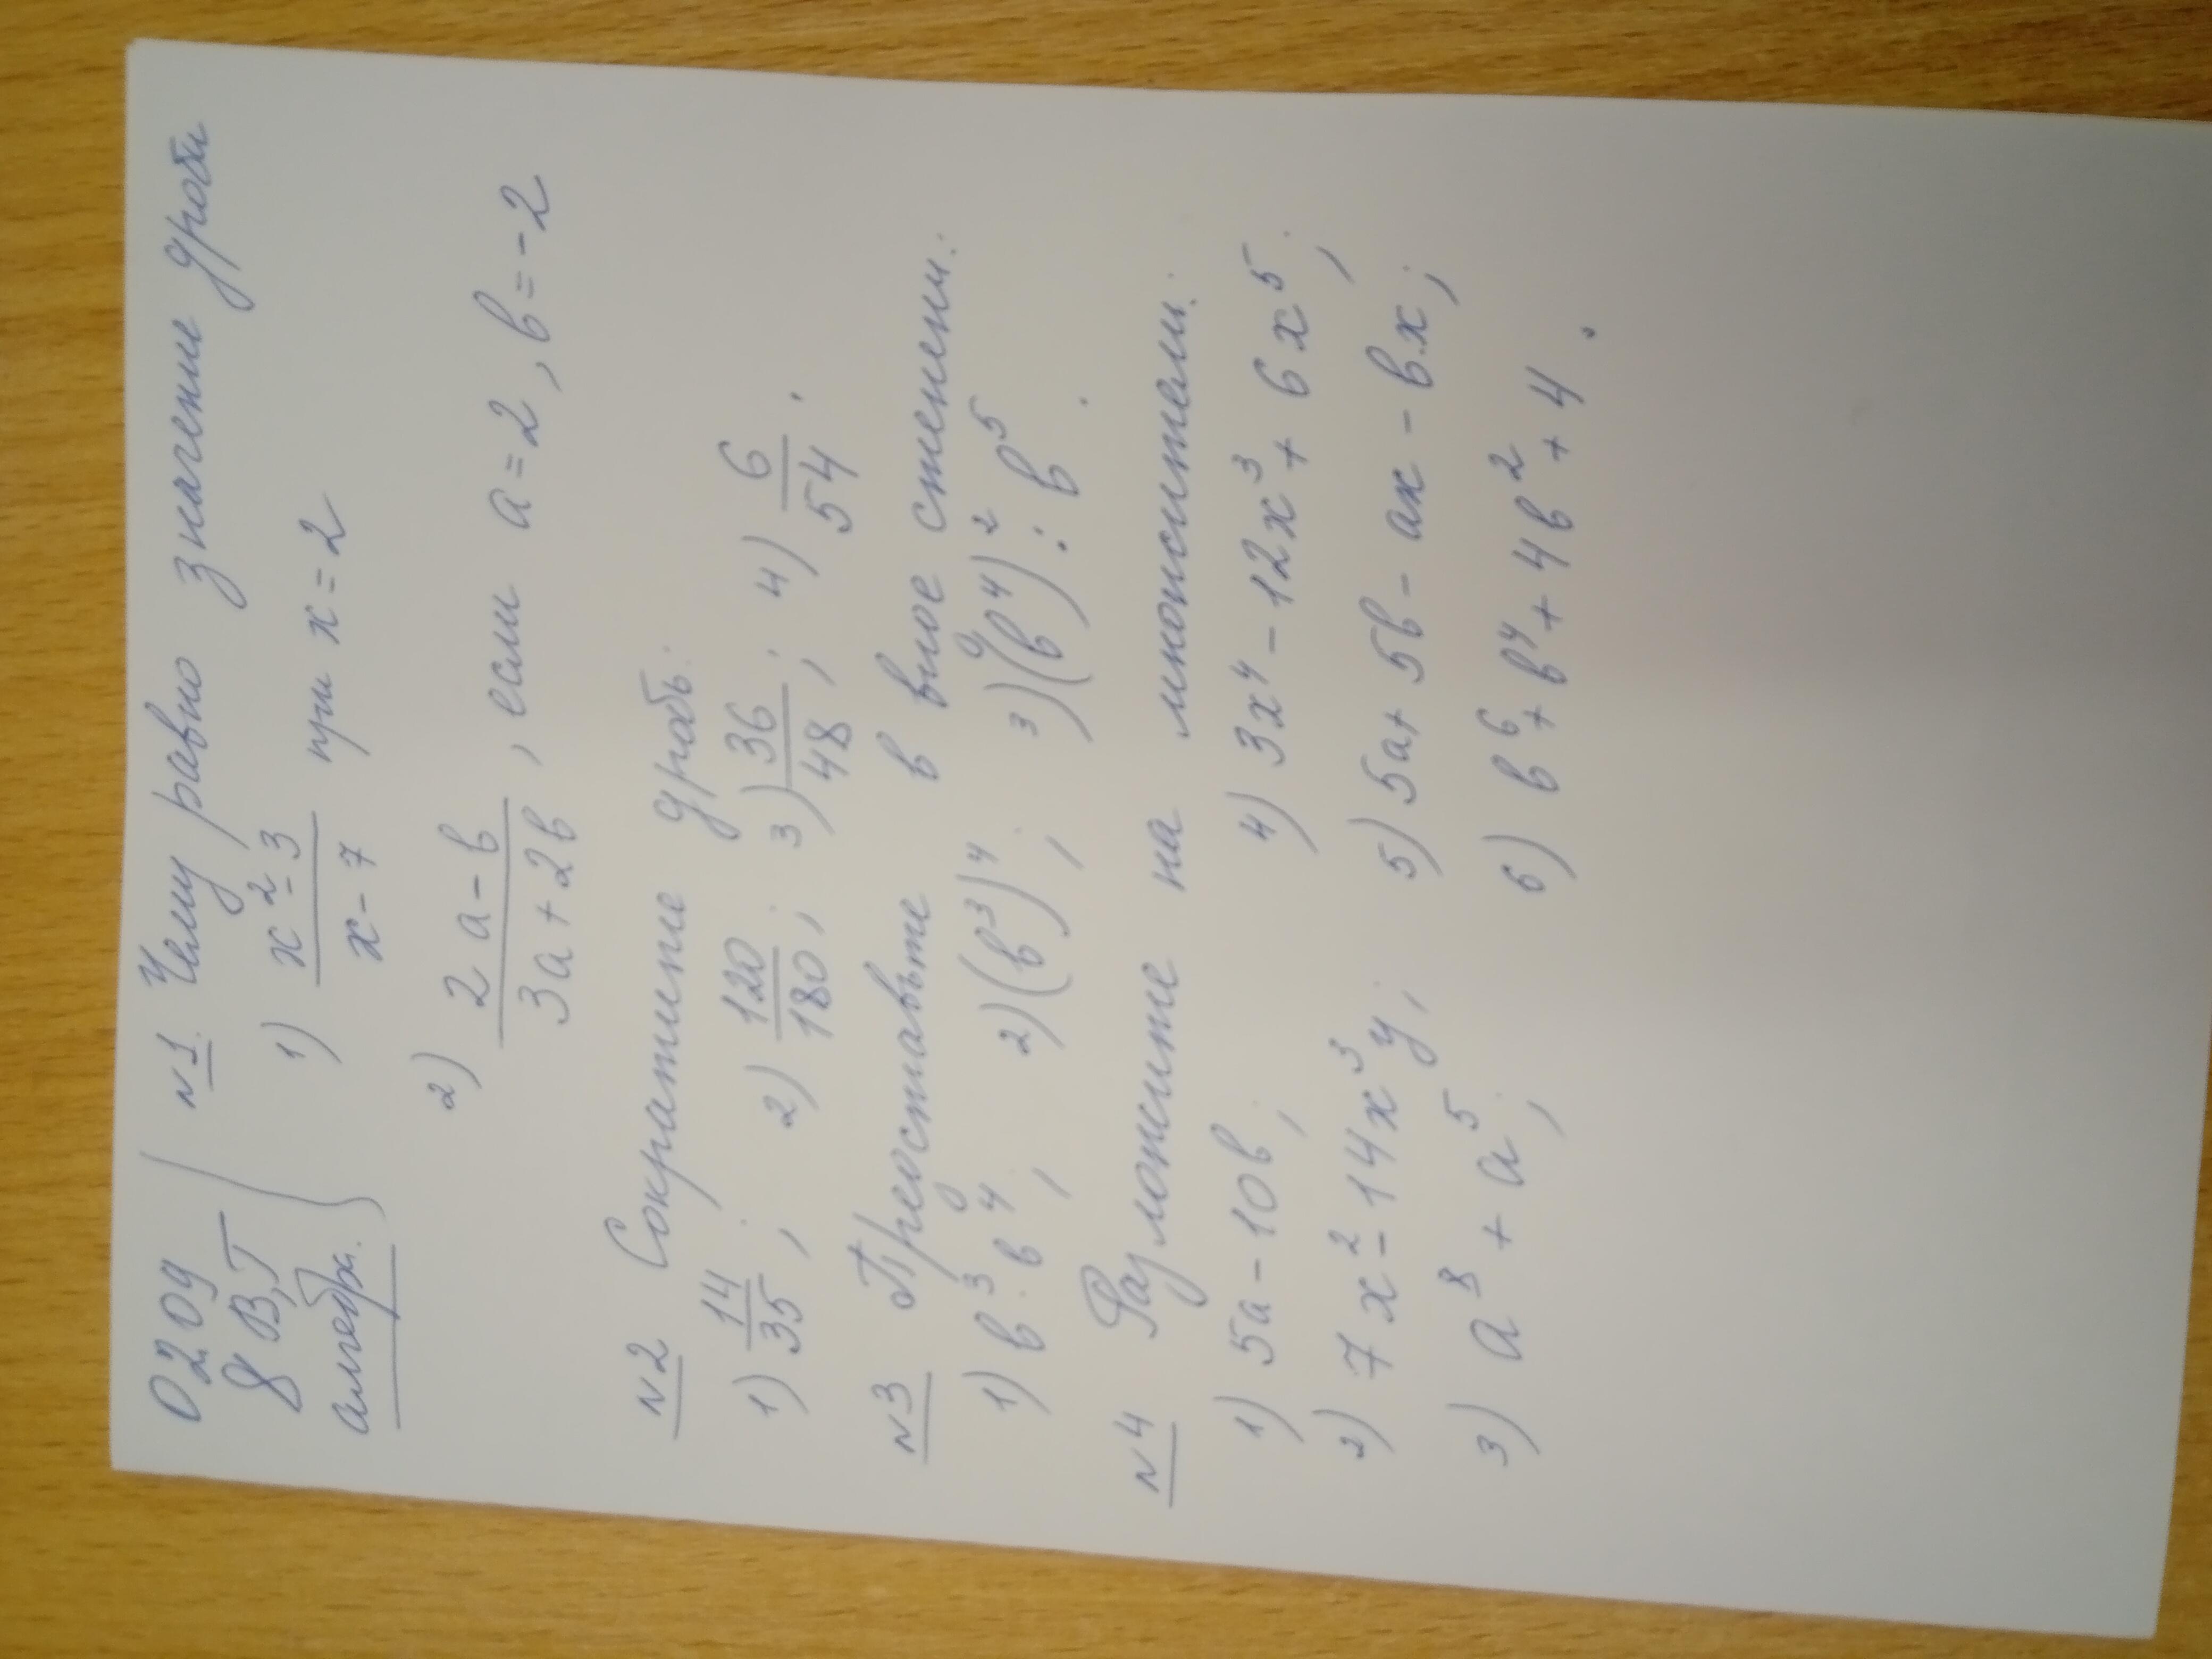 02.09
8 В,Г
алгебра.
№1. Чему равно значение дроби
1) (x² - 3)/(x - 7) при x = 2
2) (2a - b)/(3a + 2b), если a = 2, b = -2
№2 Сократите дробь:
1) 14/35; 2) 120/180; 3) 36/48; 4) 6/54.
№3 Представьте в виде степени:
1) b³·b⁴; 2) (b³)⁴; 3) (b⁴)² : b⁵.
№4 Разложите на множители:
1) 5a - 10b; 4) 3x⁴ - 12x³ + 6x⁵;
2) 7x² - 14x³y; 5) 5a + 5b - ax - bx;
3) a⁸ + a⁵; 6) b⁶ + b⁴ + 4b² + 4.